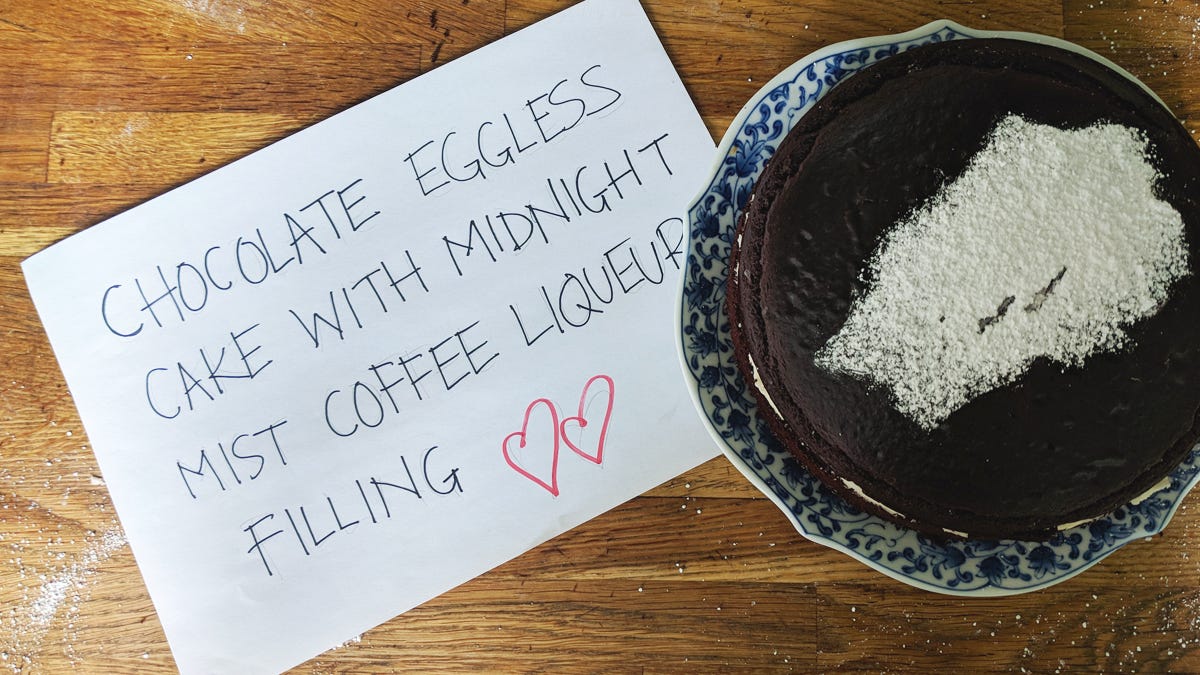 CHOCOLATE EGGLESS
CAKE WITH MIDNIGHT
MIST COFFEE LIQUEUR
FILLING